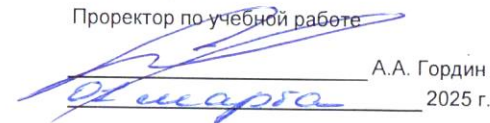 Проректор по учебной работе
А.А. Гордин
01 марта 2025 г.